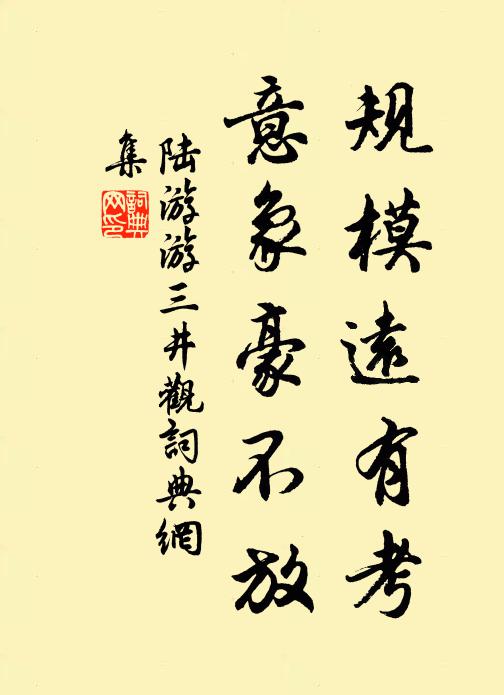 規模遠有考
意象豪不放
陆游游三井觀詞典網
集
詞典
网印